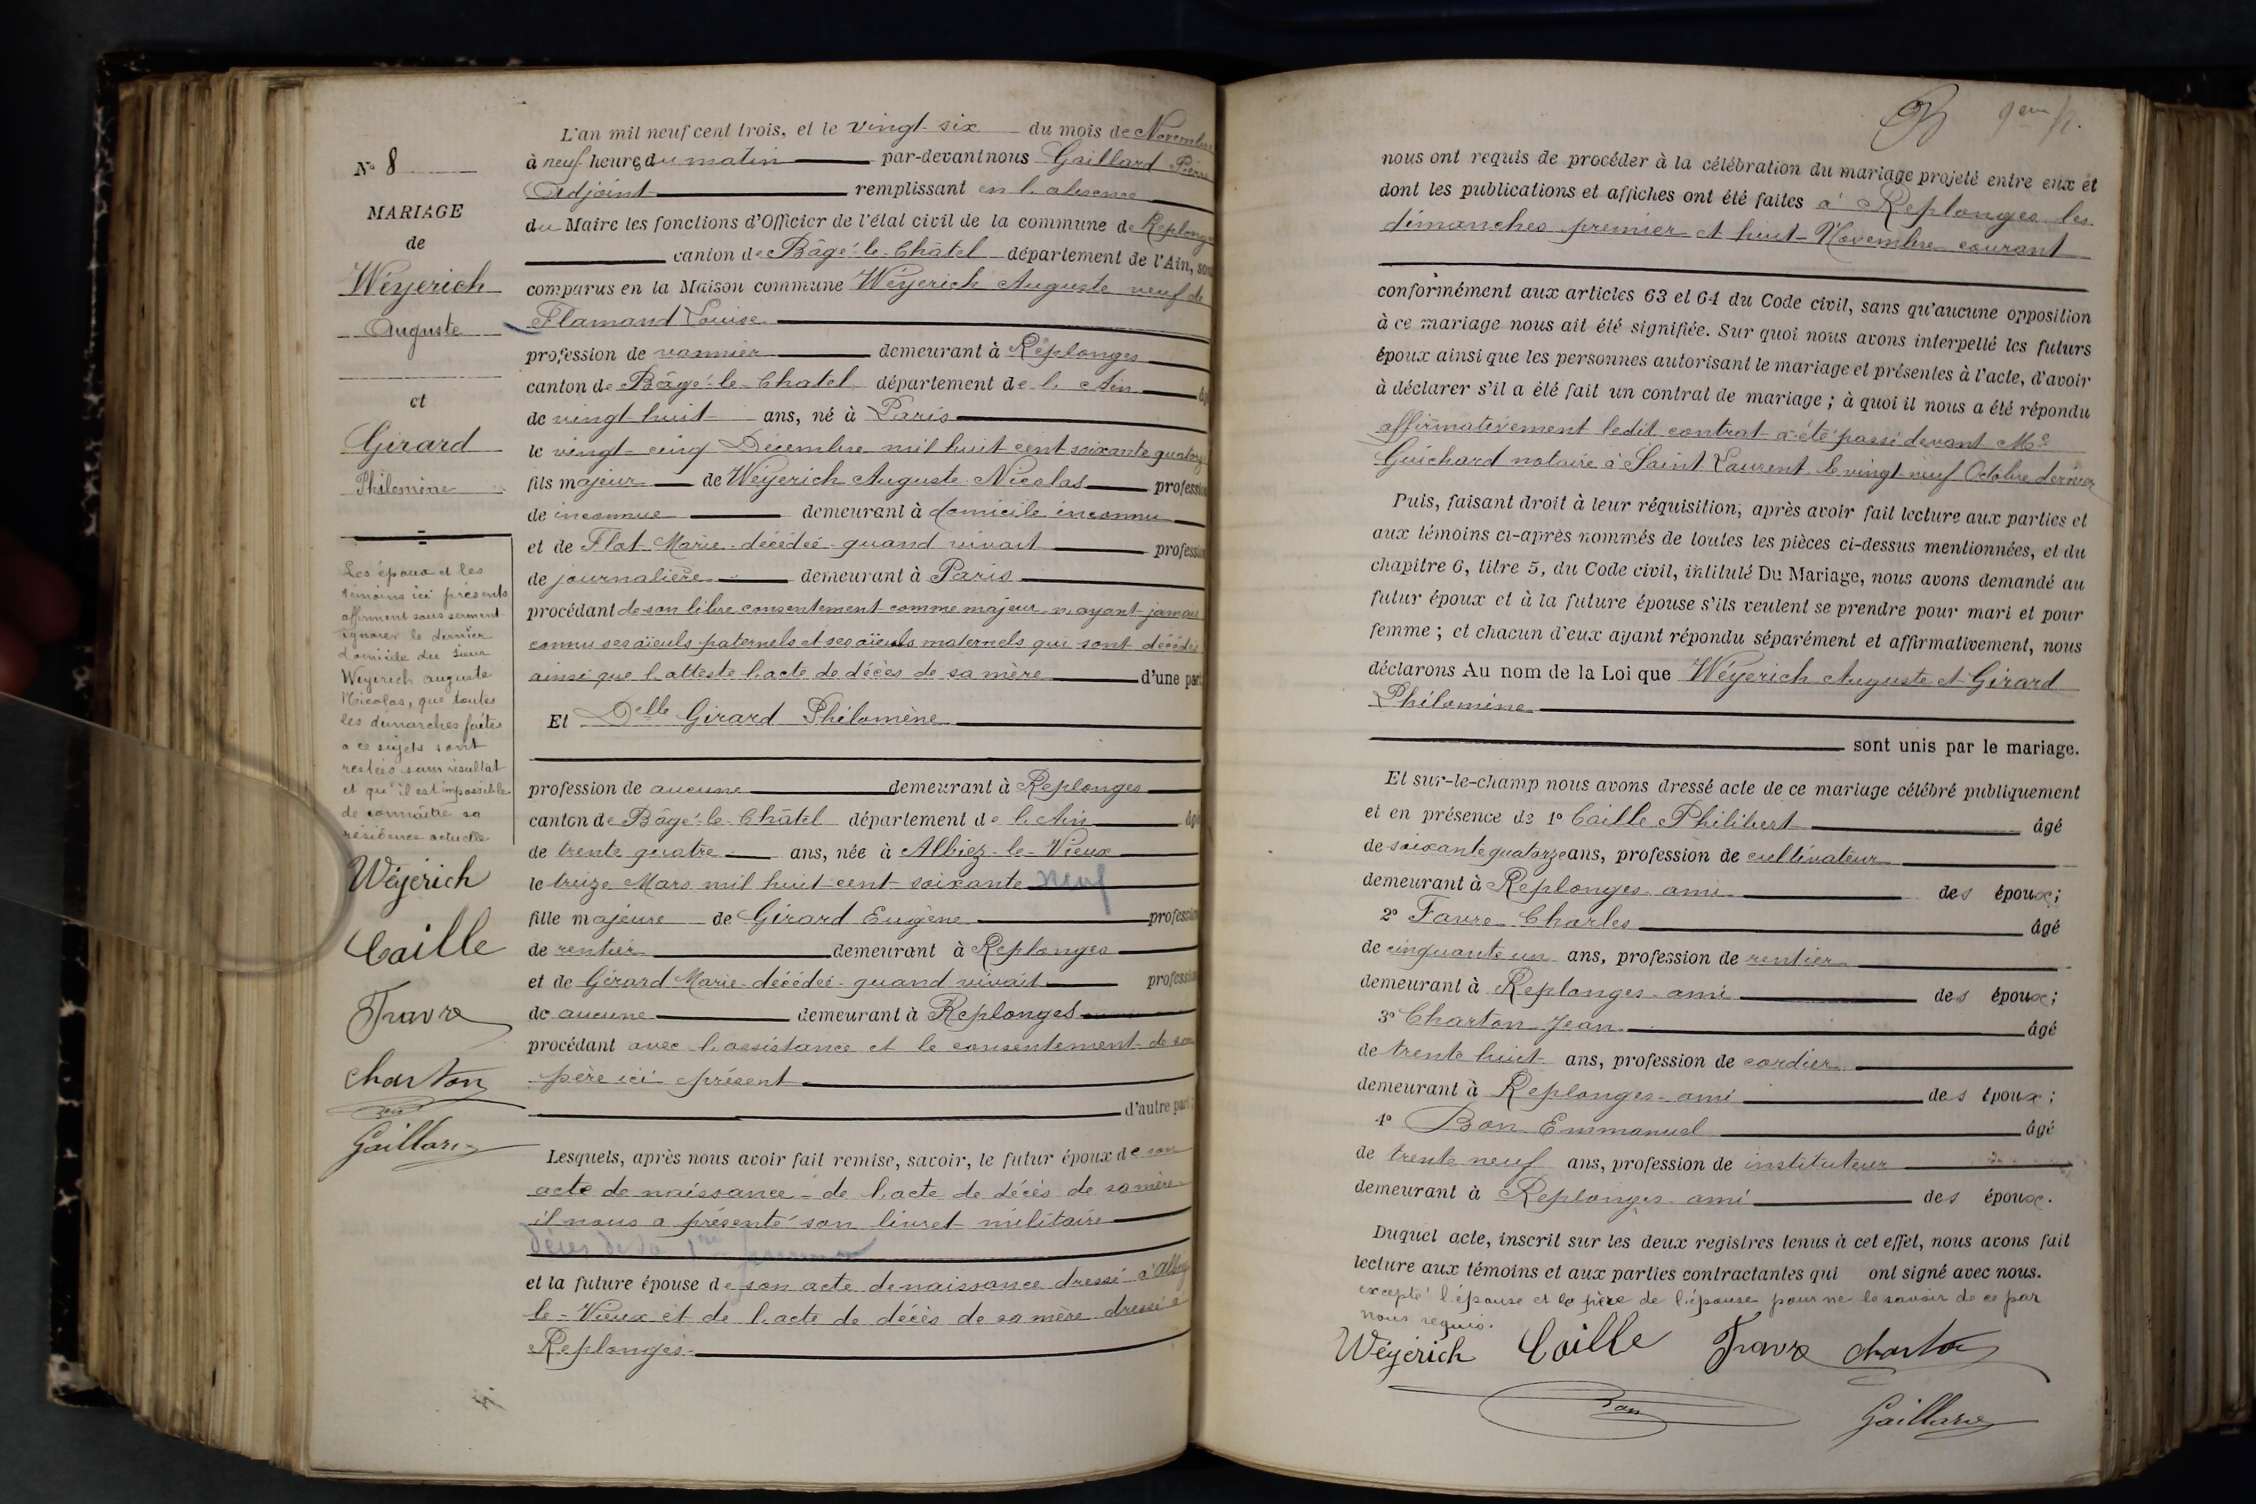 N° 8
MARIAGE
de
Wéyerich
Auguste
et
Girard
Philomène
Les époux et les
témoins ici présents
affirment sous serment
ignorer le dernier
domicile du sieur
Weyerich auguste
Nicolas, que toutes
les démarches faites
a ce sujets sont
restées sans résultat
et qu'il est impossible
de connaître sa
résidence actuelle
Wéyérich
Caille
Favre
Charton
Bon
Gaillard
L'an mil neuf cent trois, et le vingt-six du mois de Novembre
à neuf heures du matin par-devant nous Gaillard Pierre
Adjoint remplissant en l'absence
du Maire les fonctions d'Officier de l'état civil de la commune de Replonges
canton de Bâgé-le-Châtel département de l'Ain, sont
comparus en la Maison commune Wéyerich Auguste veuf de
Flamand Louise
profession de vannier demeurant à Replonges
canton de Bâgé-le-Chatel département de l'Ain âgé
de vingt huit ans, né à Paris
le vingt-cinq Décembre mil huit cent soixante quatorze
fils majeur de Wéyerich Auguste Nicolas profession
de inconnue demeurant à domicile inconnu
et de Flat Marie décédée quand vivait profession
de journalière demeurant à Paris
procédant de son libre consentement comme majeur n'ayant jamais
connu ses aïeuls paternels et ses aïeuls maternels qui sont décédés
ainsi que l'atteste l'acte de décès de sa mère d'une part
Et Delle Girard Philomène
profession de aucune demeurant à Replonges
canton de Bâgé-le-Châtel département de l'Ain âgé
de trente quatre ans, née à Albiez-le-Vieux
le treize Mars mil huit cent soixante neuf
fille majeure de Girard Eugène profession
de rentier demeurant à Replonges
et de Gérard Marie décédée quand vivait profession
de aucune demeurant à Replonges
procédant avec l'assistance et le consentement de son
père ici présent
d'autre part
Lesquels, après nous avoir fait remise, savoir, le futur époux de son
acte de naissance - de l'acte de décès de sa mère
il nous a présenté son livret militaire
Décès de sa 1re femme
et la future épouse de son acte de naissance dressé à Albiez
le-Vieux et de l'acte de décès de sa mère dressé à
Replonges
nous ont requis de procéder à la célébration du mariage projeté entre eux et
dont les publications et affiches ont été faites à Replonges les
dimanches premier et huit Novembre courant
conformément aux articles 63 et 64 du Code civil, sans qu'aucune opposition
à ce mariage nous ait été signifiée. Sur quoi nous avons interpellé les futurs
époux ainsi que les personnes autorisant le mariage et présentes à l'acte, d'avoir
à déclarer s'il a été fait un contrat de mariage ; à quoi il nous a été répondu
affirmativement ledit contrat a été passé devant Me
Guichard notaire à Saint Laurent le vingt neuf Octobre dernier
Puis, faisant droit à leur réquisition, après avoir fait lecture aux parties et
aux témoins ci-après nommés de toutes les pièces ci-dessus mentionnées, et du
chapitre 6, titre 5, du Code civil, intitulé Du Mariage, nous avons demandé au
futur époux et à la future épouse s'ils veulent se prendre pour mari et pour
femme ; et chacun d'eux ayant répondu séparément et affirmativement, nous
déclarons Au nom de la Loi que Wéyerich Auguste et Girard
Philomène
sont unis par le mariage.
Et sur-le-champ nous avons dressé acte de ce mariage célébré publiquement
et en présence de 1° Caille Philibert âgé
de soixante quatorze ans, profession de cultivateur
demeurant à Replonges ami des époux;
2° Favre Charles âgé
de cinquante un ans, profession de rentier
demeurant à Replonges ami des époux;
3° Charton Jean âgé
de trente huit ans, profession de cordier
demeurant à Replonges ami des époux;
4° Bon Emmanuel âgé
de trente neuf ans, profession de instituteur
demeurant à Replonges ami des époux.
Duquel acte, inscrit sur les deux registres tenus à cet effet, nous avons fait
lecture aux témoins et aux parties contractantes qui ont signé avec nous.
excepté l'épouse et le père de l'épouse pour ne le savoir de ce par
nous requis.
Wéyérich Caille Favre Charton
Bon Gaillard